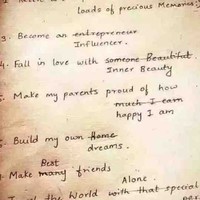 loads of precious Memories
3. Become an entrepreneur
Influencer.
4. Fall in love with someone Beautiful
Inner Beauty
5. Make my parents proud of how
much I earn
happy I am
Build my own Home
dreams.
Best
Make many friends
Alone.
the World with that special